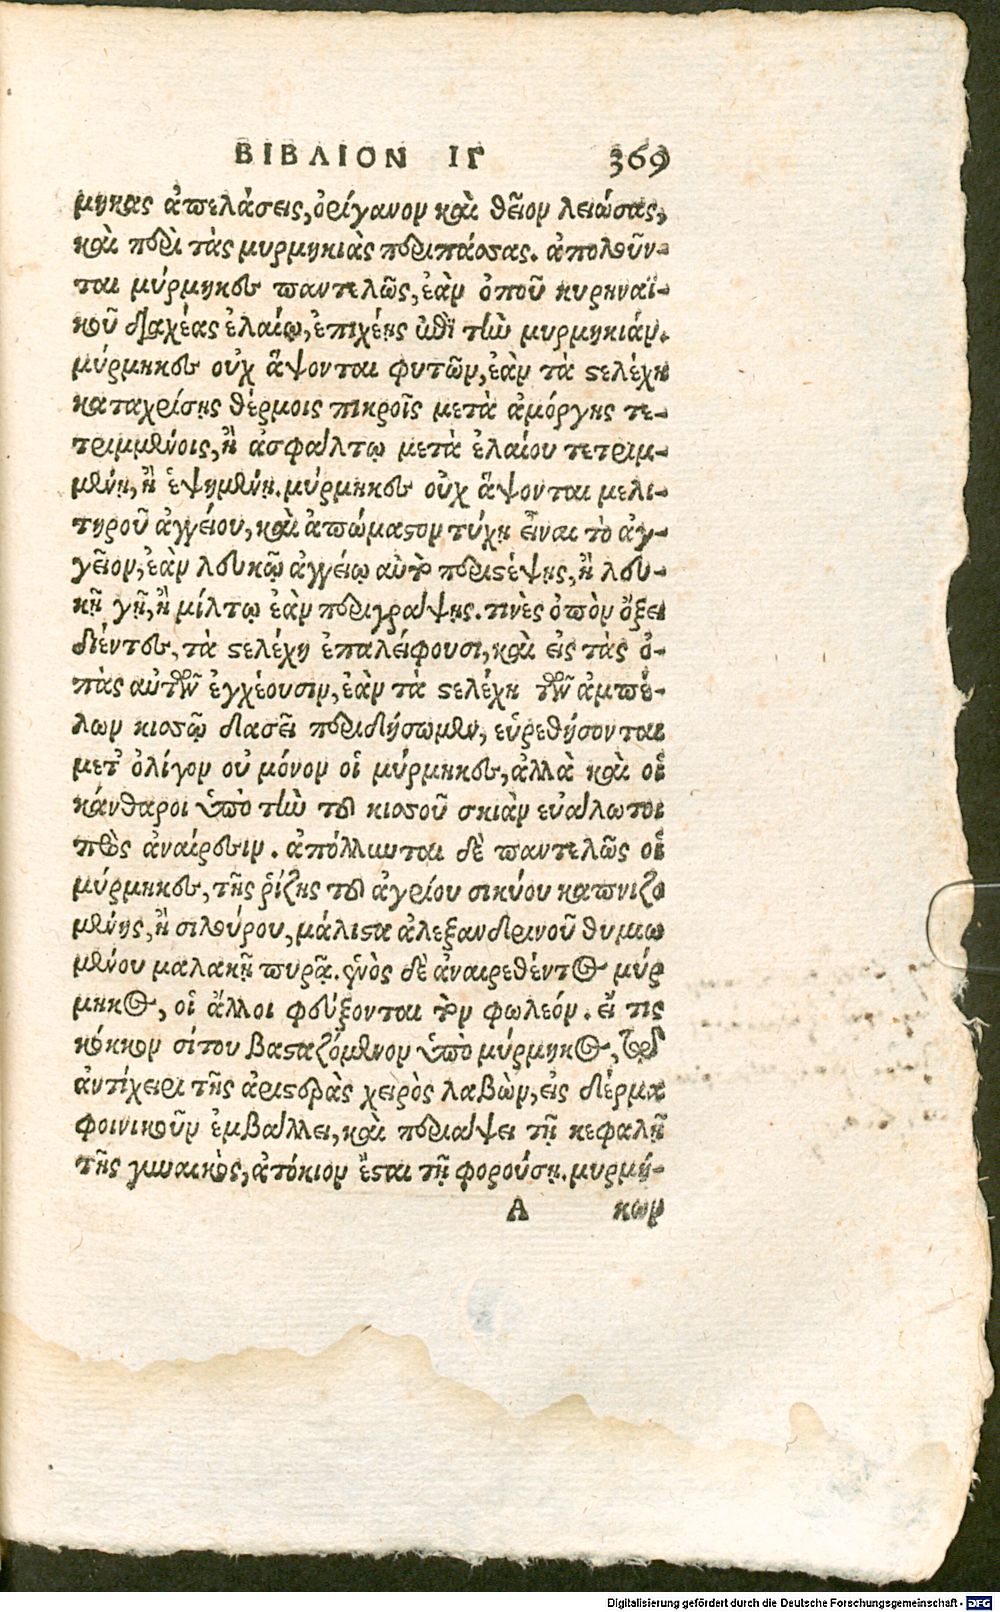 ΒΙΒΛΙΟΝ ΙΓ 369
μηκας ἀπελάσεις, ὀρίγανον καὶ θεῖον λειώσας,
καὶ περὶ τὰς μυρμηκιὰς περιπάσσας. ἀπολοῦν-
ται μύρμηκες παντελῶς, ἐὰν ὀποῦ κυρηναϊ-
κοῦ διαχέας ἐλαίῳ, ἐπιχέῃς ἐπὶ τὴν μυρμηκιάν.
μύρμηκες οὐχ ἅψονται φυτῶν, ἐὰν τὰ στελέχη
καταχρίσῃς θέρμοις πικροῖς μετὰ ἀμόργης τε-
τριμμένοις, ἢ ἀσφάλτῳ μετὰ ἐλαίου τετριμ-
μένῃ, ἢ ἑψημένῃ. μύρμηκες οὐχ ἅψονται μελι-
τηροῦ ἀγγείου, καὶ ἀπώμαστον τύχῃ εἶναι τὸ ἀγ-
γεῖον, ἐὰν λευκῷ ἀγγείῳ αὐτὸ περιστέψῃς, ἢ λευ-
κῇ γῇ, ἢ μίλτῳ ἐὰν περιγράψῃς. τινὲς ὀπὸν ὄξει
διέντες, τὰ στελέχη ἐπαλείφουσι, καὶ εἰς τὰς ὀ-
πὰς αὐτῶν ἐγχέουσιν, ἐὰν τὰ στελέχη τῶν ἀμπέ-
λων κισσῷ δασεῖ περιδήσωμεν, εὑρεθήσονται
μετ' ὀλίγον οὐ μόνον οἱ μύρμηκες, ἀλλὰ καὶ οἱ
κάνθαροι ὑπὸ τὴν τοῦ κισσοῦ σκιὰν εὐάλωτοι
πρὸς ἀναίρεσιν. ἀπόλλυνται δὲ παντελῶς οἱ
μύρμηκες, τῆς ῥίζης τοῦ ἀγρίου σικύου καπνιζο
μένης, ἢ σιλούρου, μάλιστα ἀλεξανδρινοῦ θυμιω
μένου μαλακῇ πυρᾷ. ἑνὸς δὲ ἀναιρεθέντος μύρ
μηκος, οἱ ἄλλοι φεύξονται τὸν φωλεόν. εἴ τις
κόκκον σίτου βασταζόμενον ὑπὸ μύρμηκος, τῷ
ἀντίχειρι τῆς ἀριστερᾶς χειρὸς λαβὼν, εἰς δέρμα
φοινικοῦν ἐμβάλλει, καὶ περιάψει τῇ κεφαλῇ
τῆς γυναικὸς, ἀτόκιον ἔσται τῇ φορούσῃ. μυρμή-
A κων
Digitalisierung gefördert durch die Deutsche Forschungsgemeinschaft - DFG